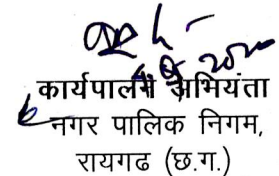 कार्यपालन अभियंता
नगर पालिक निगम,
रायगढ (छ.ग.)